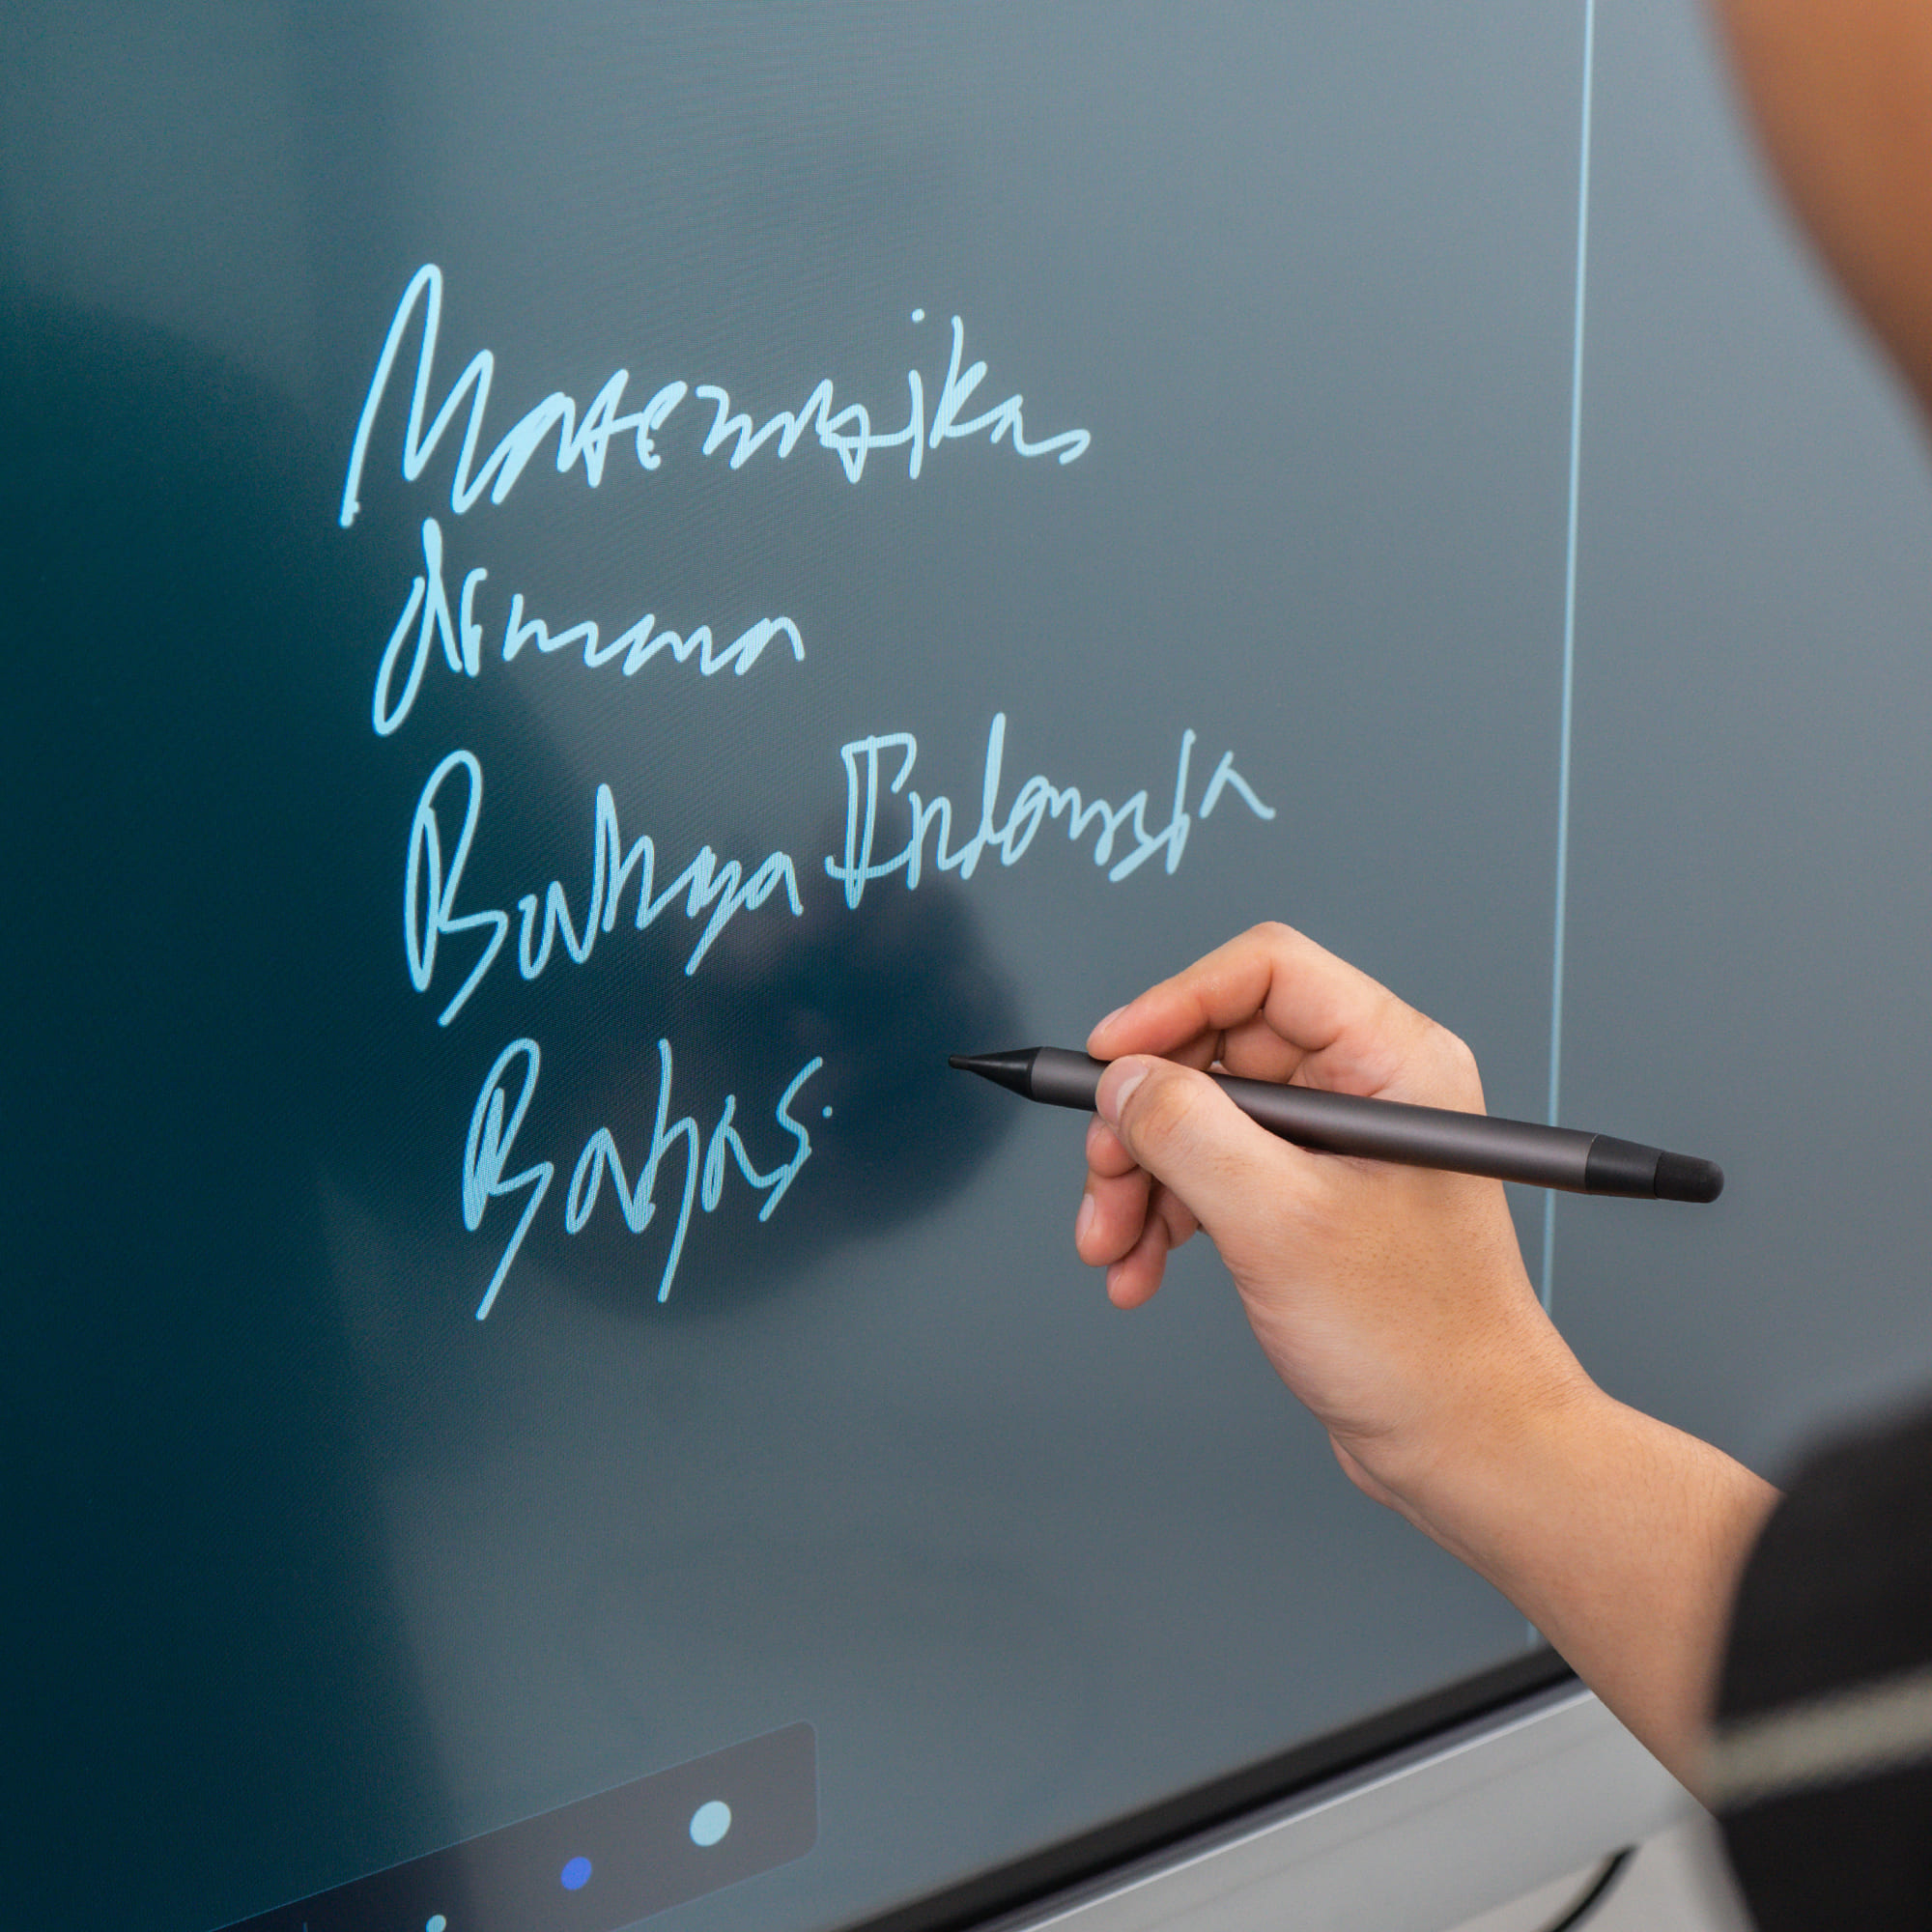 Matematika
drama
Bahasa Indonesia
Bahas